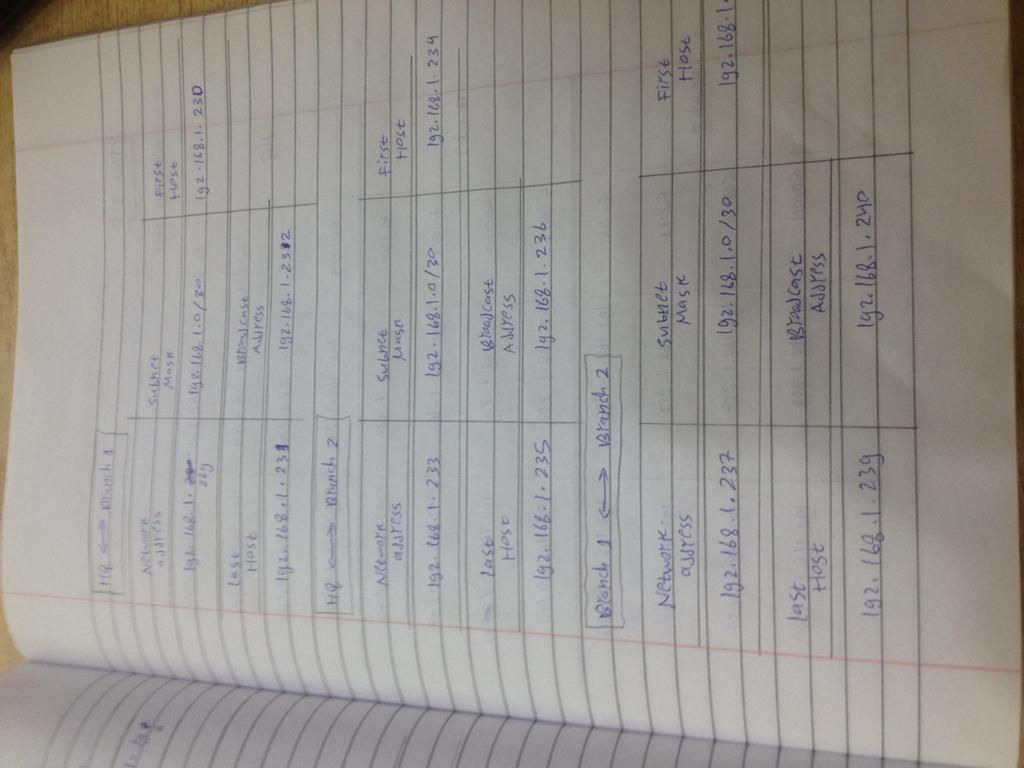 HQ ⟷ Branch 1
Network address | Subnet Mask | First Host
192.168.1.229 | 192.168.1.0/30 | 192.168.1.230
Last Host | Broadcast Address
192.168.1.231 | 192.168.1.232
HQ ⟷ Branch 2
Network address | Subnet Mask | First Host
192.168.1.233 | 192.168.1.0/30 | 192.168.1.234
Last Host | Broadcast Address
192.168.1.235 | 192.168.1.236
Branch 1 ⟷ Branch 2
Network address | Subnet Mask | First Host
192.168.1.237 | 192.168.1.0/30 | 192.168.1.
Last Host | Broadcast Address
192.168.1.239 | 192.168.1.240